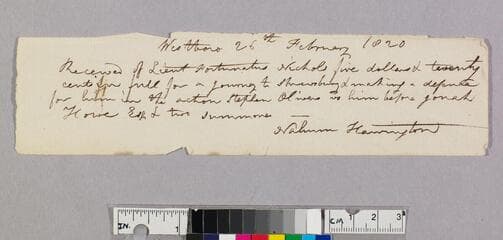 Westboro 26th February 1820
Received of Lieut Fortunatus Nichols five dollars & twenty
cents in full for a journey to Shrewsbury & making a defence
for him in the action Stephen Olivers vs him before Jonah
Howe Esq & two summons
Nahum Harrington
IN.
1
2
CM
1
2
3